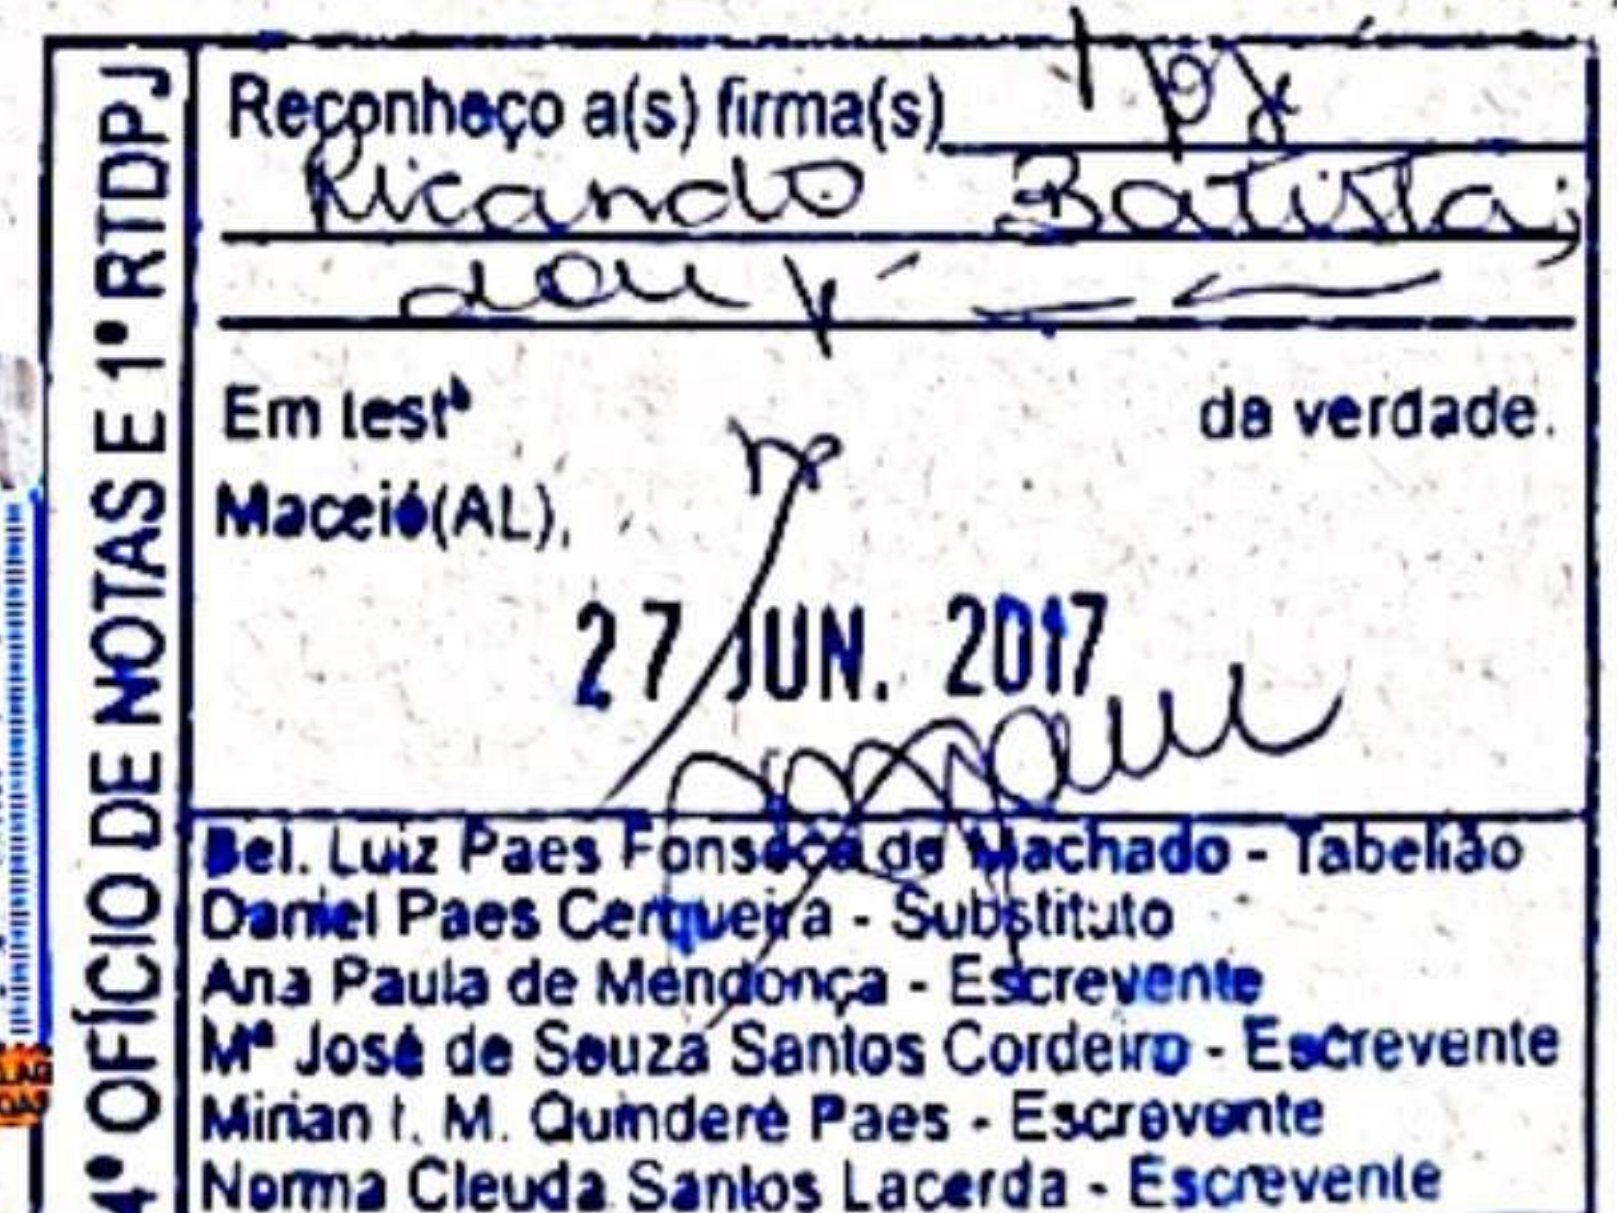 4º OFÍCIO DE NOTAS E 1º RTDPJ
Reconheço a(s) firma(s) por
Ricardo Batista;
dou f
Em testº da verdade.
Maceió(AL),
27 JUN. 2017
Bel. Luiz Paes Fonseca de Machado - Tabelião
Daniel Paes Cerqueira - Substituto
Ana Paula de Mendonça - Escrevente
Mª José de Souza Santos Cordeiro - Escrevente
Mirian I. M. Quinderé Paes - Escrevente
Norma Cleuda Santos Lacerda - Escrevente